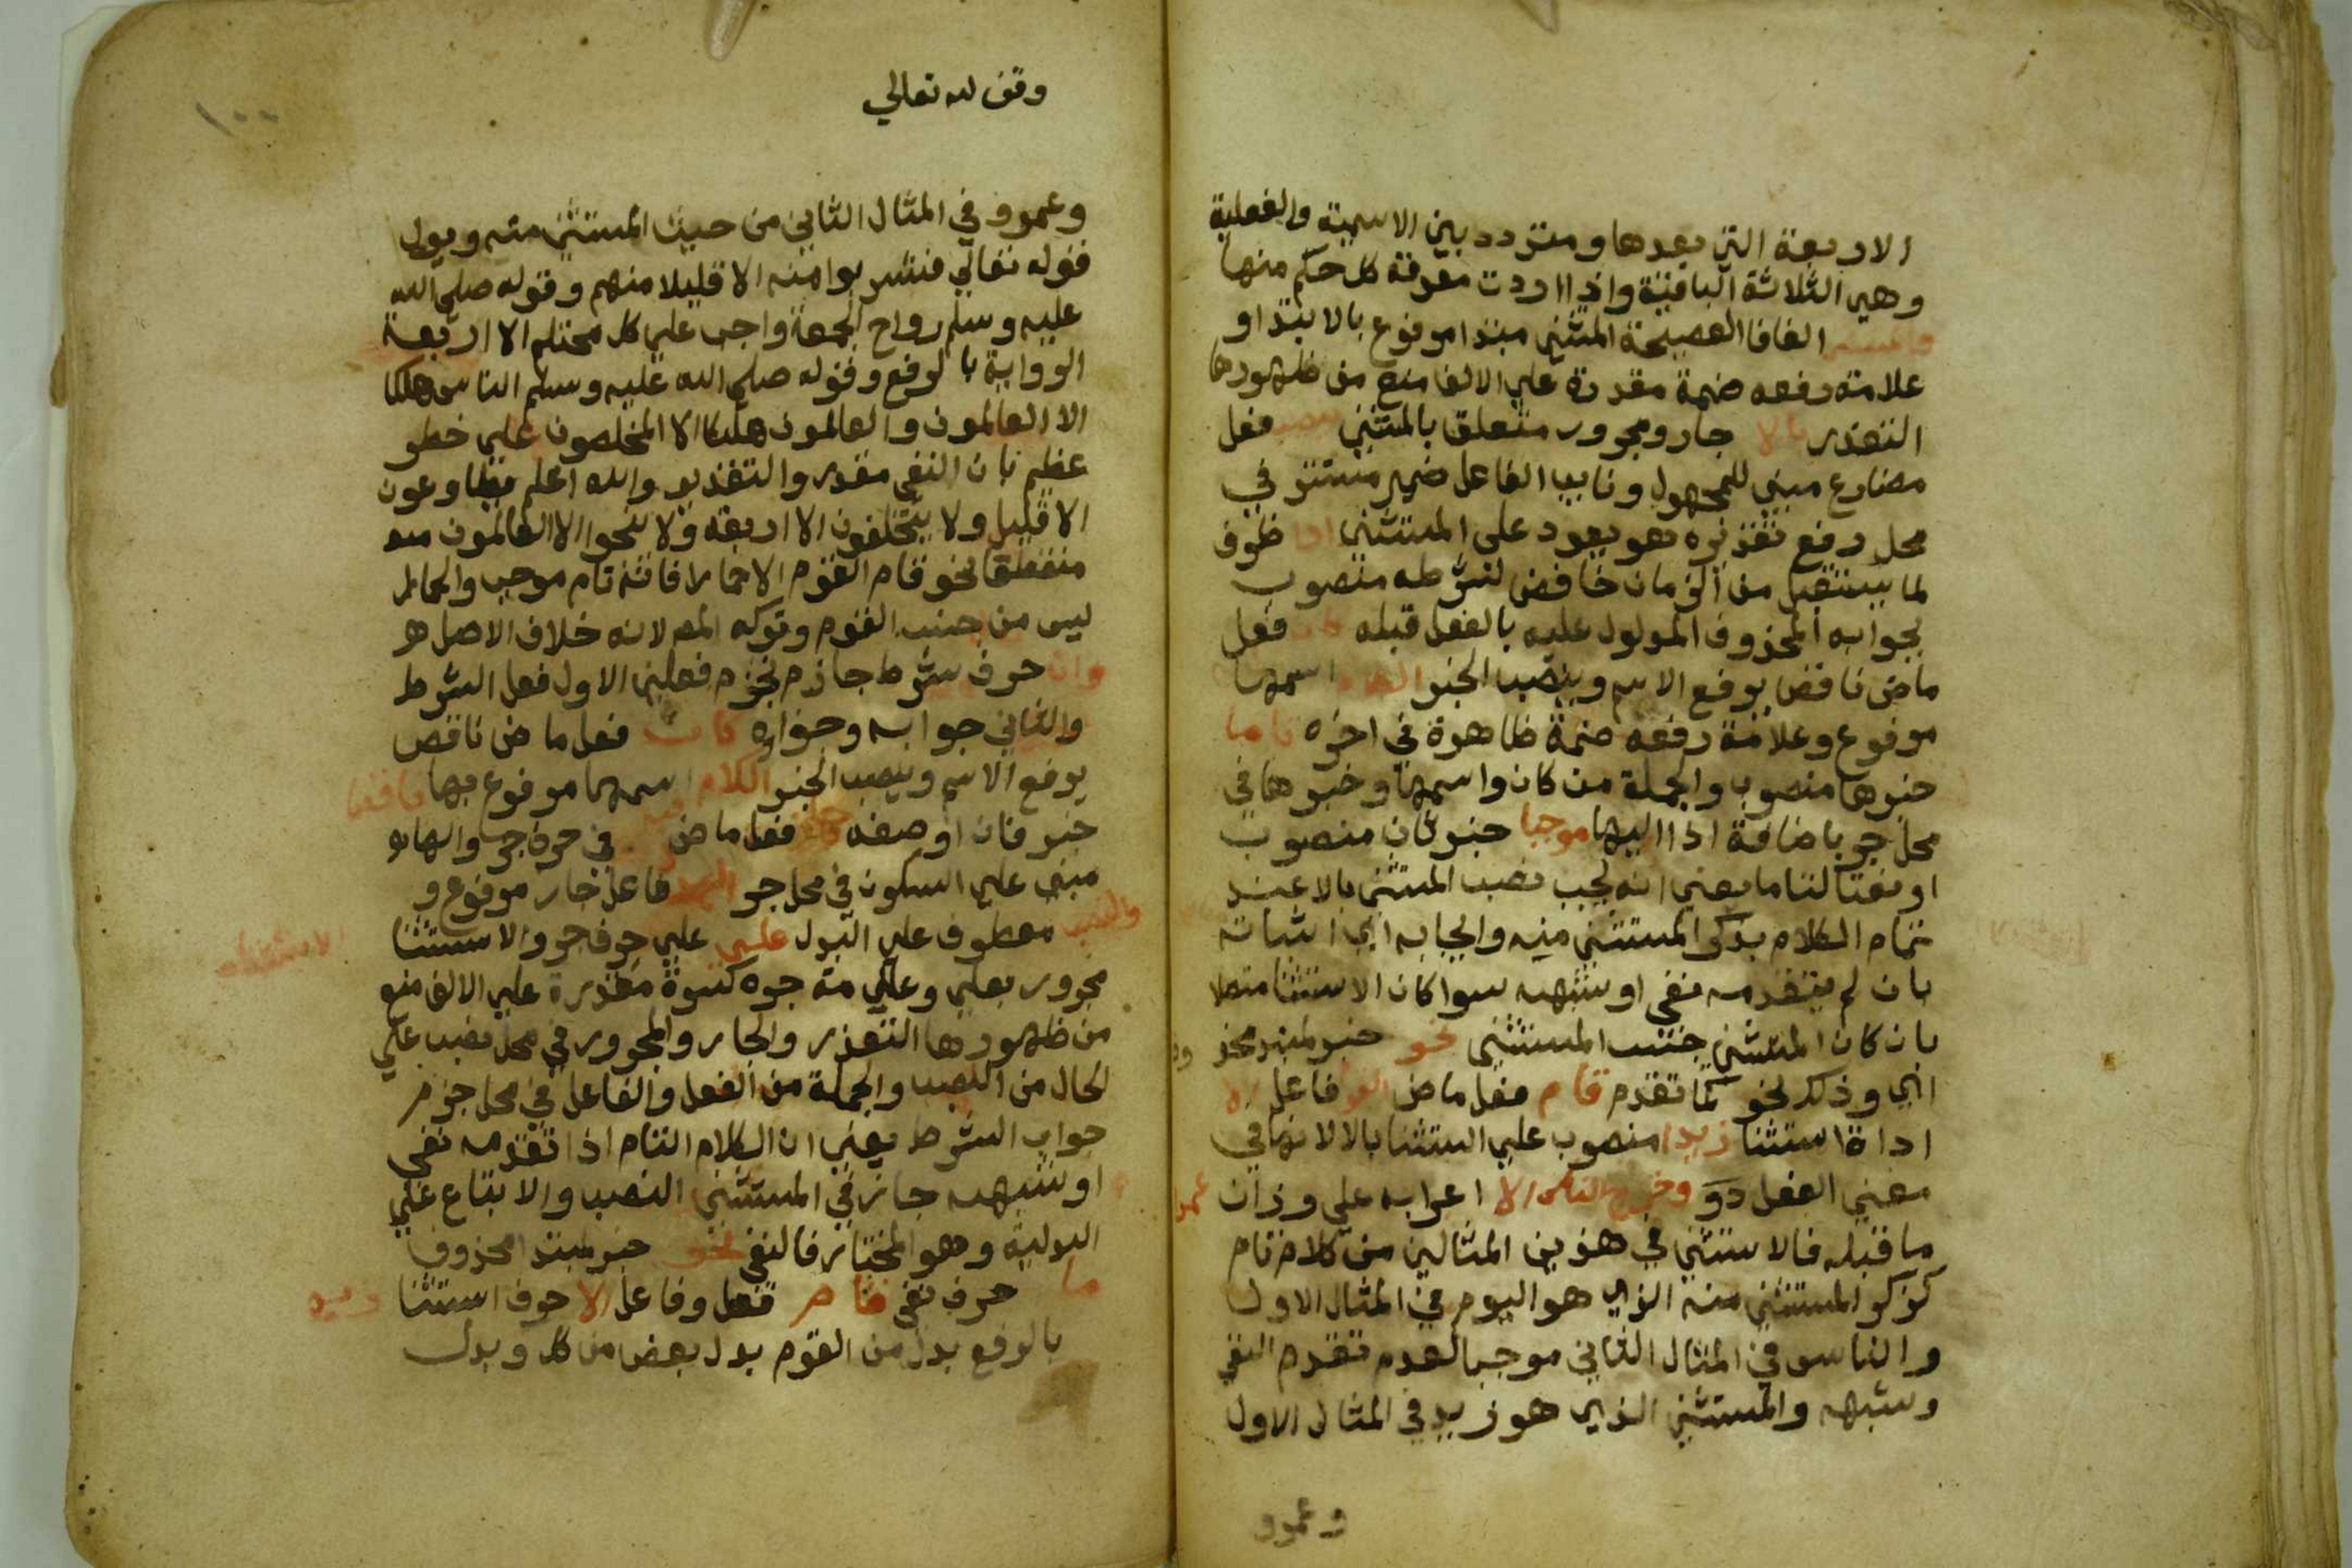 الاربعة التي بعدها ومتردد بين الاسمية والفعلية
وهي الثلاثة الباقية واذا اردت معرفة كل حكم منها
فالمستثنى الفا الفصيحة المستثنى مبتدا مرفوع بالابتدا و
علامة رفعه ضمة مقدرة على الالف منع من ظهورها
التعذر بالا جار ومجرور متعلق بالمستثنى ينصب فعل
مضارع مبني للمجهول ونايب الفاعل ضمير مستتر في
محل رفع تقديره هو يعود على المستثنى اذا ظرف
لما يستقبل من الزمان خافض لشرطه منصوب
بجوابه المحذوف المدلول عليه بالفعل قبله كان فعل
ماض ناقص يرفع الاسم وينصب الخبر الكلام اسمها
مرفوع وعلامة رفعه ضمة ظاهرة في اخره تاما
خبرها منصوب والجملة من كان واسمها وخبرها في
محل جر باضافة اذا اليها موجبا خبر ثان منصوب
او نعتا لتاما يعني انه يجب نصب المستثنى بالا عند
تمام الكلام بذكر المستثنى منه وايجابه اي اثباته
بان لم يتقدمه نفي او شبهه سوا كان الاستثنا متصلا
بان كان المستثنى جنس المستثنى نحو خبر لمبتد محذو
اي وذلك نحو كما تقدم قام فعل ماض القوم فاعل الا
اداة استثنا زيدا منصوب على الستثنا بالا لانها في
معنى الفعل وخرج الناس الا اعرابه على وزان عمرا
ما قبله فالاستثنى في هذين المثالين من كلام تام
كزكر المستثنى منه الذي هو اليوم في المثال الاول
والناس في المثال الثاني موجب لعدم تقدم النفي
وشبهه والمستثنى الذي هو زيد في المثال الاول
وعمرو
وقف لله تعالي
١٠٠
وعمرو في المثال الثاني من حيث المستثنى منه
قوله تعالي فشربوا منه الا قليلا منهم وقوله صلى الله
عليه وسلم رواح الجمعة واجب على كل محتلم الا اربعة
الرواية بالرفع وقوله صلى الله عليه وسلم الناس هلكا
الا العالمون والعالمون هلكا الا المخلصون على خطر
عظيم بان النفي مقدر والتقدير والله اعلم يطاوعون
الا قليل ولا يتخلفون الا اربعة ولا ينجوا الا العالمون
منقطعا نحو قام القوم الا حمارا فانه تام موجب والحمار
ليس من جنس القوم وتركه المص لانه خلاف الاصل
وان حرف شرط جازم يجزم فعلين الاول فعل الشرط
والثاني جوابه وجزاوه كان فعل ماض ناقص
يرفع الاسم وينصب الخبر الكلام اسمها مرفوع بها ناقصا
خبر فان او صفه جاز فعل ماض فيه في حرف جر والهاء
مبني على السكون في محل جر البدل فاعل جاز مرفوع و
والنصب معطوف على البدل على علي حرف جر والاستثنا الاستثناء
مجرور بعلي وعلامة جره كسرة مقدرة علي الالف منع
من ظهورها التعذر والجار والمجرور في محل نصب علي
الحال من النصب والجملة من الفعل والفاعل في محل جزم
جواب الشرط يعني ان الكلام التام اذا تقدمه نفي
او شبهه جاز في المستثنى النصب والاتباع علي
البدلية وهو المختار فالنفي نحو خبر لمبتدا محذوف
ما حرف نفي قام فعل وفاعل الا حرف استثنا زيد
بالرفع بدل من القوم بدل بعض من كل وبدل